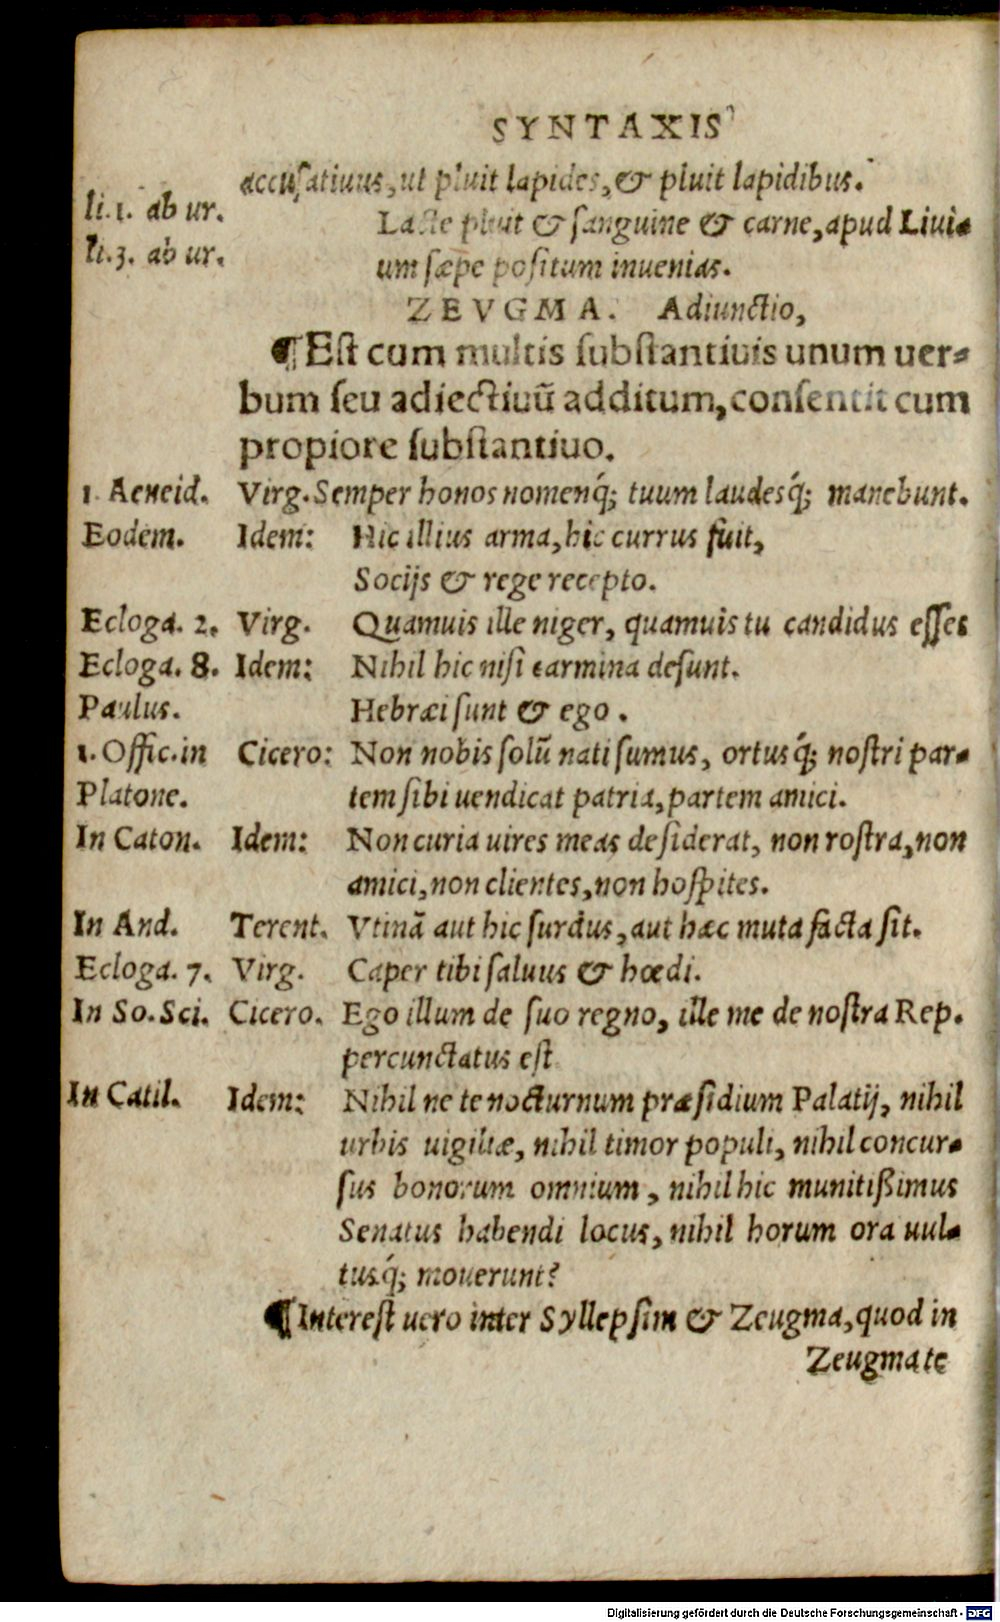 SYNTAXIS
accusatiuus, ut pluit lapides, & pluit lapidibus.
li.1. ab ur. Lacte pluit & sanguine & carne, apud Liui-
li.3. ab ur. um sæpe positum inuenias.
ZEVGMA. Adiunctio,
¶ Est cum multis substantiuis unum uer-
bum seu adiectiuũ additum, consentit cum
propiore substantiuo.
1 Aeneid. Virg. Semper honos nomenq́; tuum laudesq́; manebunt.
Eodem. Idem: Hic illius arma, hic currus fuit,
Socijs & rege recepto.
Ecloga. 2. Virg. Quamuis ille niger, quamuis tu candidus esses
Ecloga. 8. Idem: Nihil hic nisi carmina desunt.
Paulus. Hebræi sunt & ego.
1. Offic. in Cicero: Non nobis solũ nati sumus, ortusq́; nostri par-
Platone. tem sibi uendicat patria, partem amici.
In Caton. Idem: Non curia uires meas desiderat, non rostra, non
amici, non clientes, non hospites.
In And. Terent. Vtinã aut hic surdus, aut hæc muta facta sit.
Ecloga. 7. Virg. Caper tibi saluus & hœdi.
In So. Sci. Cicero. Ego illum de suo regno, ille me de nostra Rep.
percunctatus est
In Catil. Idem: Nihil ne te nocturnum præsidium Palatij, nihil
urbis uigiliæ, nihil timor populi, nihil concur-
sus bonorum omnium, nihil hic munitißimus
Senatus habendi locus, nihil horum ora uul-
tusq́; mouerunt?
¶ Interest uero inter Syllepsim & Zeugma, quod in
Zeugmate
Digitalisierung gefördert durch die Deutsche Forschungsgemeinschaft - DFG